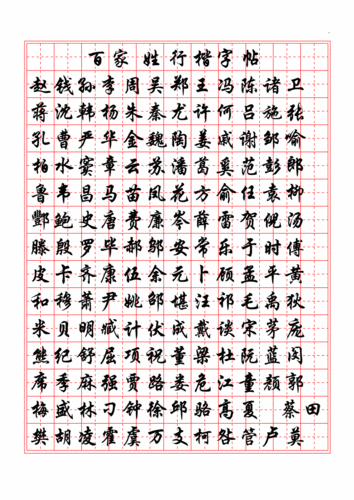 百家姓行楷字帖
赵钱孙李周吴郑王冯陈诸卫
蒋沈韩杨朱秦尤许何吕施张
孔曹严华金魏陶姜戚谢邹喻
柏水窦章云苏潘葛奚范彭郎
鲁韦昌马苗凤花方俞任袁柳
酆鲍史唐费廉岑薛雷贺倪汤
滕殷罗毕郝邬安常乐于时傅
皮卡齐康伍余元卜顾孟平黄
和穆萧尹姚邹堪汪祁毛禹狄
米贝明臧计伏成戴谈宋茅庞
熊纪舒屈项祝董梁杜阮蓝闵
席季麻强贾路娄危江童颜郭
梅盛林刁钟徐邱骆高夏蔡田
樊胡凌霍虞万支柯昝管卢莫